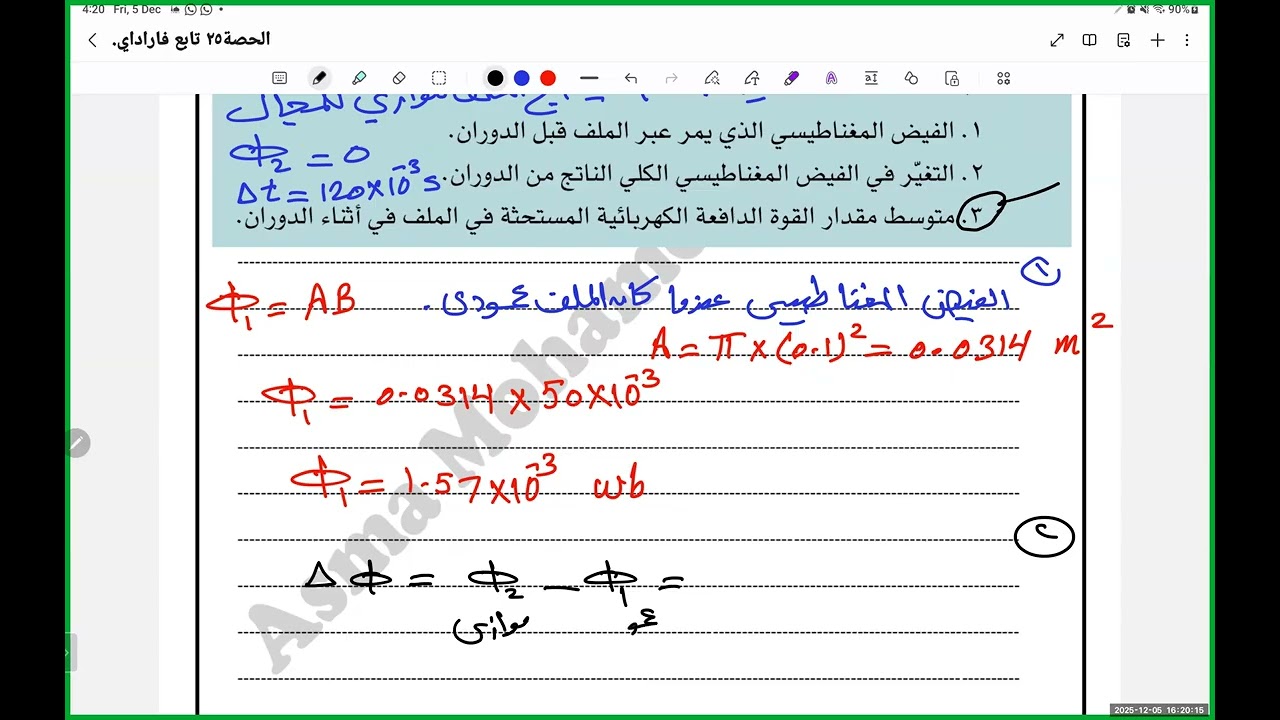 4:20 Fri, 5 Dec
90%
الحصة٢٥ تابع فاراداي.
للمجال
١. الفيض المغناطيسي الذي يمر عبر الملف قبل الدوران.
Φ₂ = 0
٢. التغيّر في الفيض المغناطيسي الكلي الناتج من الدوران.
Δt = 120×10⁻³ s
٣. متوسط مقدار القوة الدافعة الكهربائية المستحثة في الملف في أثناء الدوران.
الفيض المغناطيسي عندما كان الملف عمودي.
Φ₁ = AB
A = π × (0.1)² = 0.0314 m²
Φ₁ = 0.0314 × 50×10⁻³
Φ₁ = 1.57×10⁻³ wb
ΔΦ = Φ₂ − Φ₁ =
موازي
Asma Mohame
2025-12-05 16:20:15